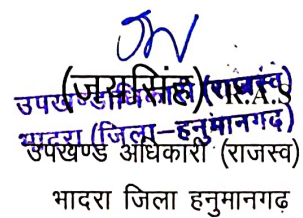 (जयसिंह) R.A.S
उपखण्डाधिकारी (राजस्व)
भादरा (जिला-हनुमानगढ़)
उपखण्ड अधिकारी (राजस्व)
भादरा जिला हनुमानगढ़